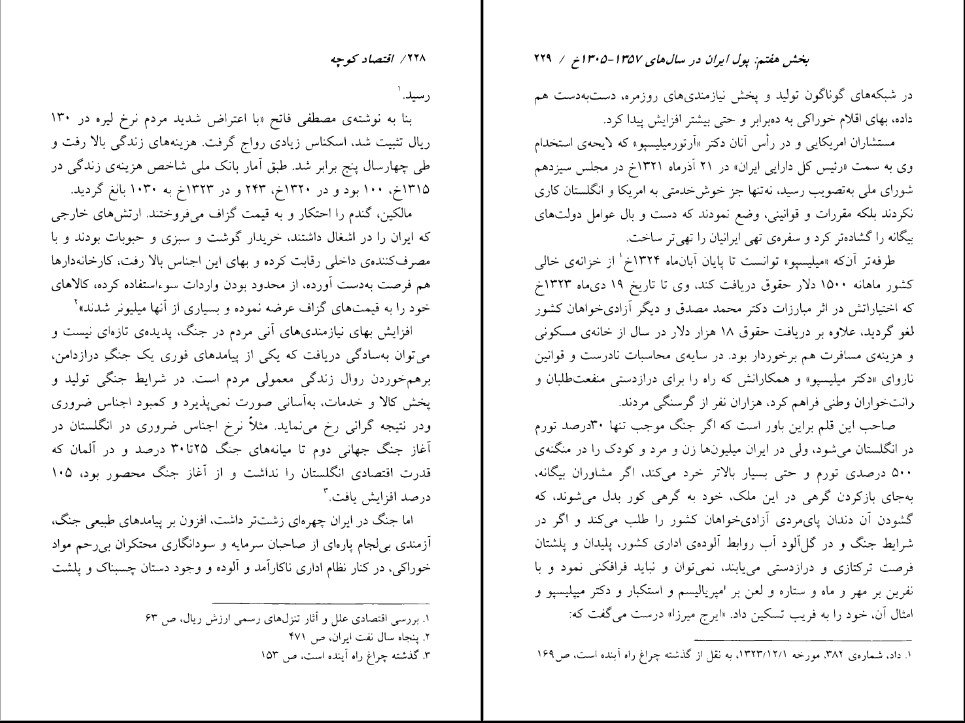 ۲۲۸/ اقتصاد کوچه
رسید.۱
بنا به نوشته‌ی مصطفی فاتح «با اعتراض شدید مردم نرخ لیره در ۱۳۰
ریال تثبیت شد، اسکناس زیادی رواج گرفت. هزینه‌های زندگی بالا رفت و
طی چهارسال پنج برابر شد. طبق آمار بانک ملی شاخص هزینه‌ی زندگی در
۱۳۱۵خ، ۱۰۰ بود و در ۱۳۲۰خ، ۲۴۳ و در ۱۳۲۳خ به ۱۰۳۰ بالغ گردید.
مالکین، گندم را احتکار و به قیمت گزاف می‌فروختند. ارتش‌های خارجی
که ایران را در اشغال داشتند، خریدار گوشت و سبزی و حبوبات بودند و با
مصرف‌کننده‌ی داخلی رقابت کرده و بهای این اجناس بالا رفت، کارخانه‌دارها
هم فرصت به‌دست آورده، از محدود بودن واردات سوءاستفاده کرده، کالاهای
خود را به قیمت‌های گزاف عرضه نموده و بسیاری از آنها میلیونر شدند»۲
افزایش بهای نیازمندی‌های آنی مردم در جنگ، پدیده‌ی تازه‌ای نیست و
می‌توان به‌سادگی دریافت که یکی از پیامدهای فوری یک جنگِ درازدامن،
برهم‌خوردن روال زندگی معمولی مردم است. در شرایط جنگی تولید و
پخش کالا و خدمات، به‌آسانی صورت نمی‌پذیرد و کمبود اجناس ضروری
ودر نتیجه گرانی رخ می‌نماید. مثلاً نرخ اجناس ضروری در انگلستان در
آغاز جنگ جهانی دوم تا میانه‌های جنگ ۲۵تا۳۰ درصد و در آلمان که
قدرت اقتصادی انگلستان را نداشت و از آغاز جنگ محصور بود، ۱۰۵
درصد افزایش یافت.۳
اما جنگ در ایران چهره‌ای زشت‌تر داشت، افزون بر پیامدهای طبیعی جنگ،
آزمندی بی‌لجام پاره‌ای از صاحبان سرمایه و سودانگاری محتکران بی‌رحم مواد
خوراکی، در کنار نظام اداری ناکارآمد و آلوده و وجود دستان چسبناک و پلشت
۱. بررسی اقتصادی علل و آثار تنزل‌های رسمی ارزش ریال، ص ۶۳
۲. پنجاه سال نفت ایران، ص ۴۷۱
۳. گذشته چراغ راه آینده است، ص ۱۵۳
بخش هفتم: پول ایران در سال‌های ۱۳۵۷-۱۳۰۵خ / ۲۲۹
در شبکه‌های گوناگون تولید و پخش نیازمندی‌های روزمره، دست‌به‌دست هم
داده، بهای اقلام خوراکی به ده‌برابر و حتی بیشتر افزایش پیدا کرد.
مستشاران امریکایی و در رأس آنان دکتر «آرتورمیلیسپو» که لایحه‌ی استخدام
وی به سمت «رئیس کل دارایی ایران» در ۲۱ آذرماه ۱۳۲۱خ در مجلس سیزدهم
شورای ملی به‌تصویب رسید، نه‌تنها جز خوش‌خدمتی به امریکا و انگلستان کاری
نکردند بلکه مقررات و قوانینی، وضع نمودند که دست و بال عوامل دولت‌های
بیگانه را گشاده‌تر کرد و سفره‌ی تهی ایرانیان را تهی‌تر ساخت.
طرفه‌تر آن‌که «میلیسپو» توانست تا پایان آبان‌ماه ۱۳۲۴خ۱ از خزانه‌ی خالی
کشور ماهانه ۱۵۰۰ دلار حقوق دریافت کند، وی تا تاریخ ۱۹ دی‌ماه ۱۳۲۳خ
که اختیاراتش در اثر مبارزات دکتر محمد مصدق و دیگر آزادی‌خواهان کشور
لغو گردید، علاوه بر دریافت حقوق ۱۸ هزار دلار در سال از خانه‌ی مسکونی
و هزینه‌ی مسافرت هم برخوردار بود. در سایه‌ی محاسبات نادرست و قوانین
ناروای «دکتر میلیسپو» و همکارانش که راه را برای درازدستی منفعت‌طلبان و
رانت‌خواران وطنی فراهم کرد، هزاران نفر از گرسنگی مردند.
صاحب این قلم براین باور است که اگر جنگ موجب تنها ۳۰درصد تورم
در انگلستان می‌شود، ولی در ایران میلیون‌ها زن و مرد و کودک را در منگنه‌ی
۵۰۰ درصدی تورم و حتی بسیار بالاتر خرد می‌کند، اگر مشاوران بیگانه،
به‌جای بازکردن گرهی در این ملک، خود به گرهی کور بدل می‌شوند، که
گشودن آن دندان پای‌مردی آزادی‌خواهان کشور را طلب می‌کند و اگر در
شرایط جنگ و در گل‌آلود آب روابط آلوده‌ی اداری کشور، پلیدان و پلشتان
فرصت ترکتازی و درازدستی می‌یابند، نمی‌توان و نباید فرافکنی نمود و با
نفرین بر مهر و ماه و ستاره و لعن بر امپریالیسم و استکبار و دکتر میلیسپو و
امثال آن، خود را به فریب تسکین داد. «ایرج میرزا» درست می‌گفت که:
۱. داد، شماره‌ی ۳۸۲، مورخه ۱۳۲۳/۱۲/۱، به نقل از گذشته چراغ راه آینده است، ص۱۶۹